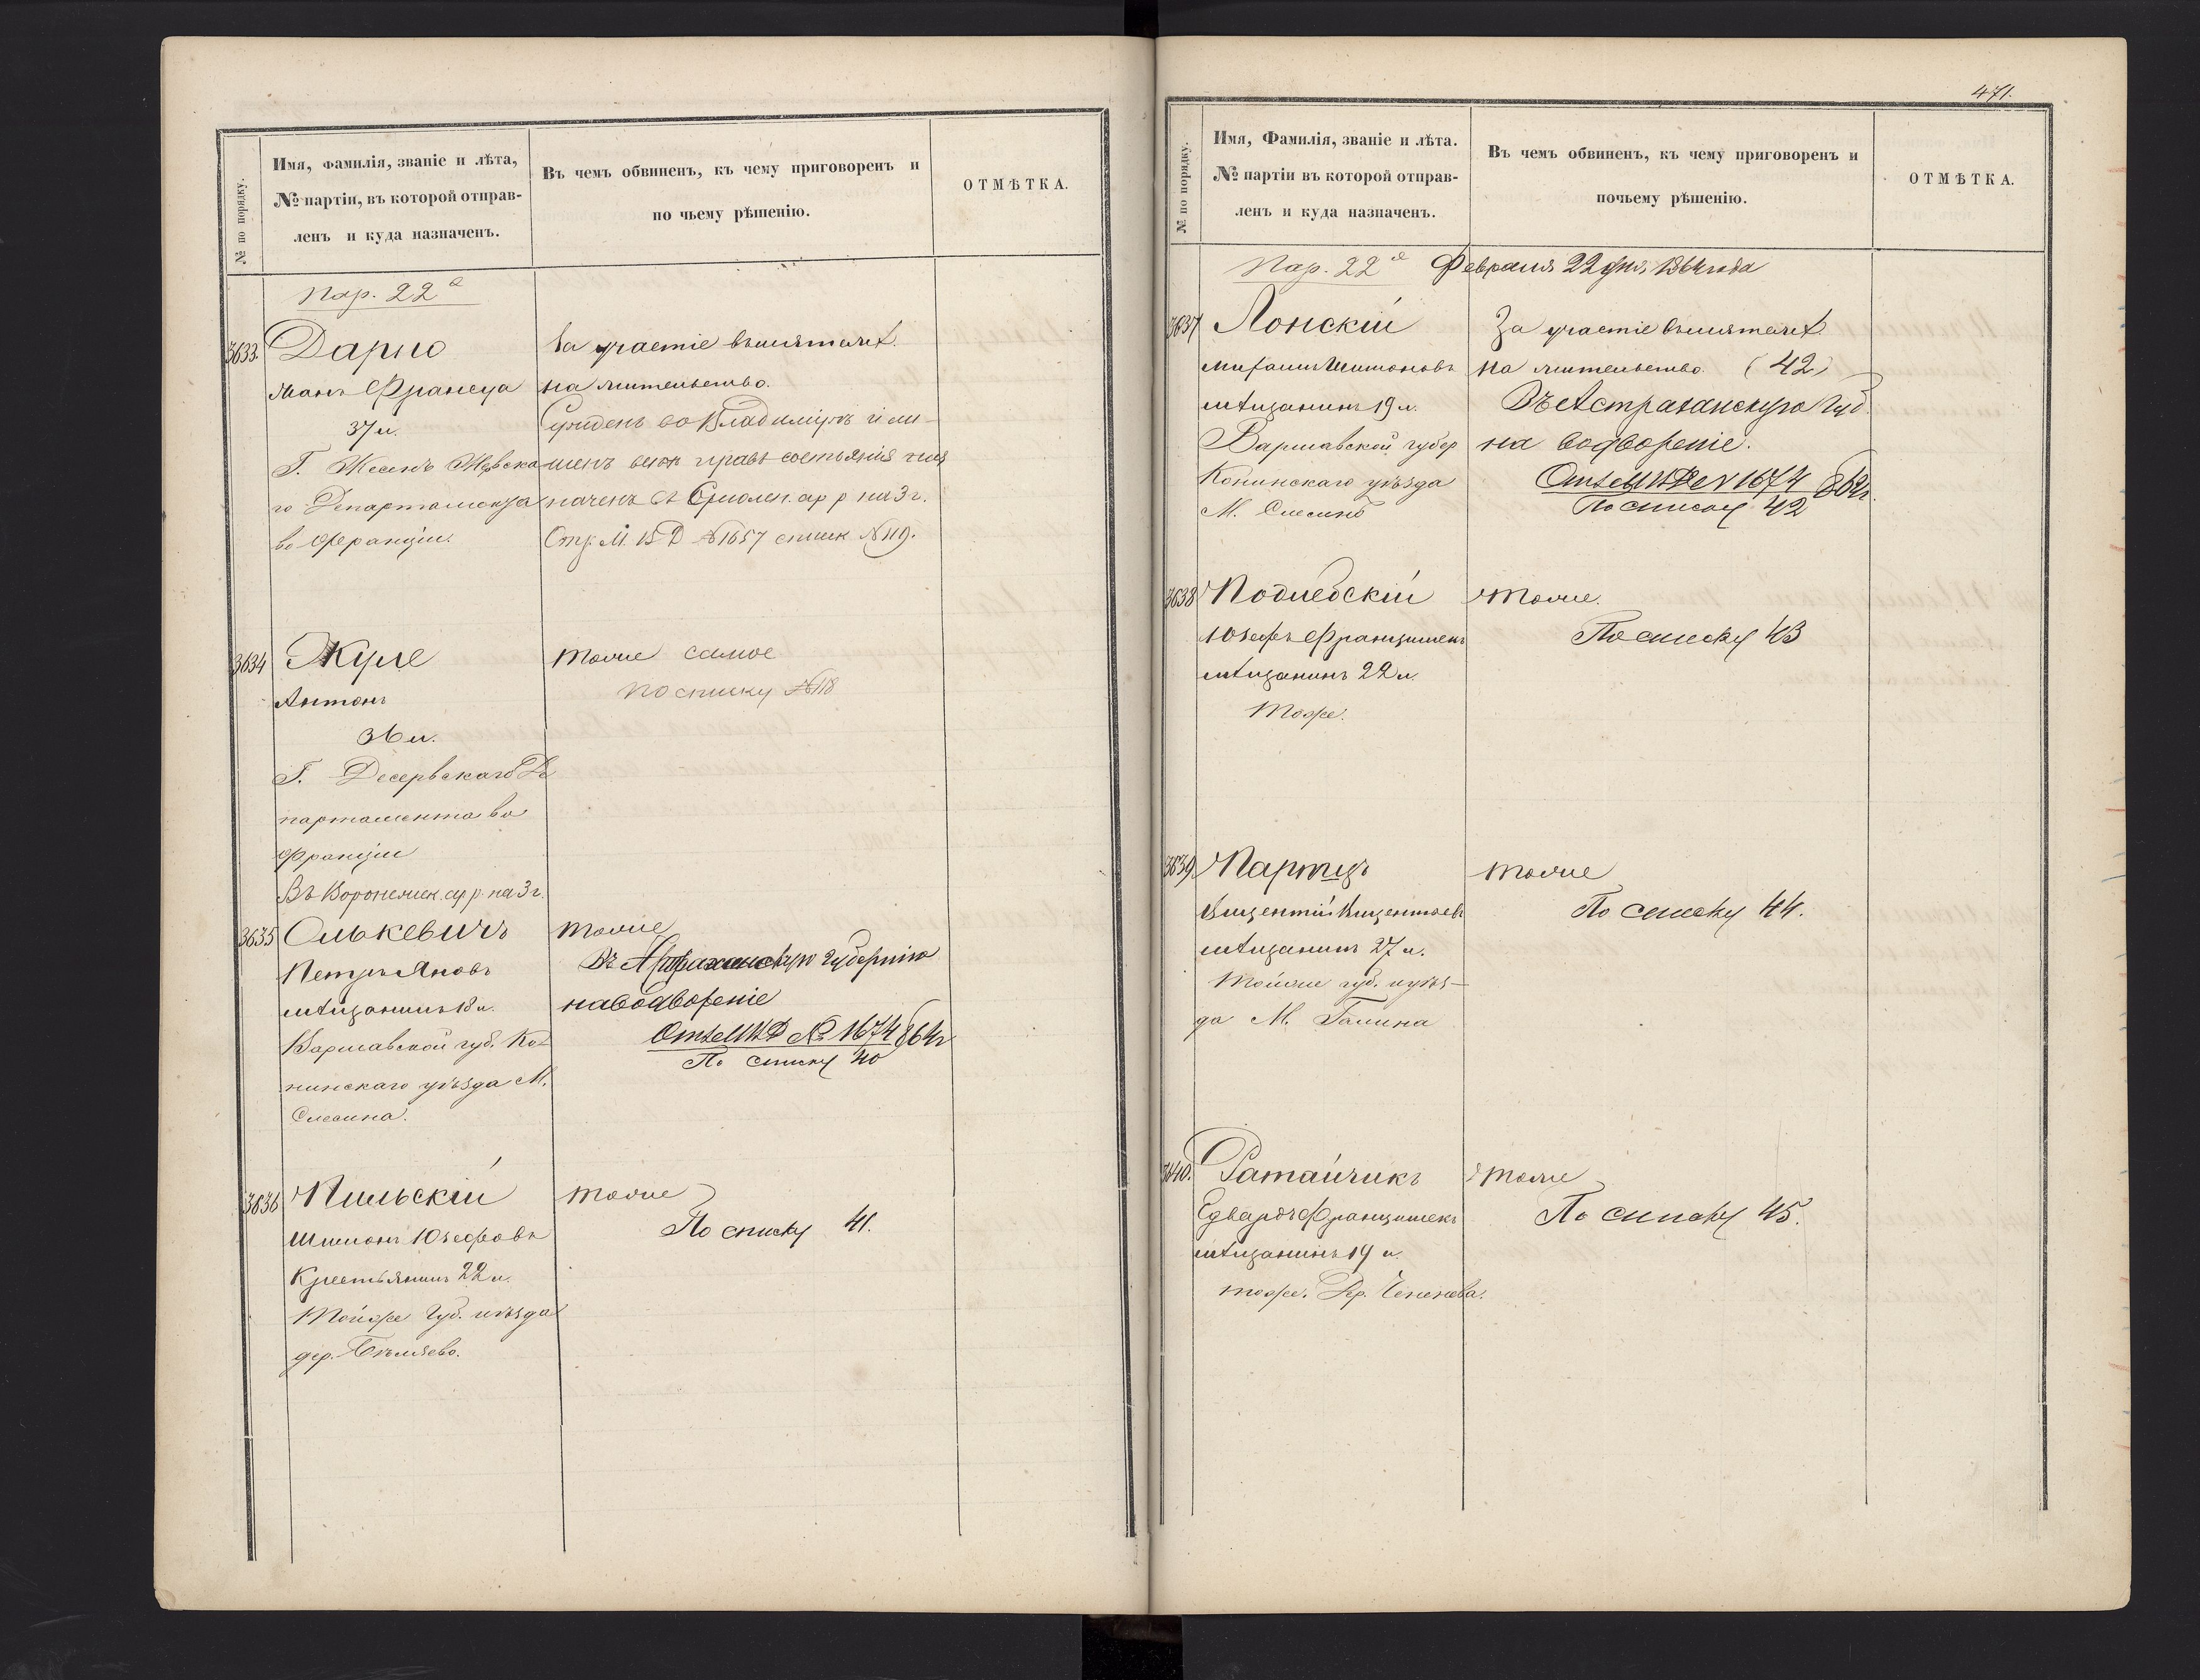 № по порядку.
Имя, Фамилія, званіе и лѣта,
№ партіи, въ которой отправ-
ленъ и куда назначенъ.
Въ чемъ обвиненъ, къ чему приговоренъ и
по чьему рѣшенію.
ОТМѢТКА.
Пар. 22й
3633.
Дарно
Жанъ Франсуа
37 л.
во Франціи.
За участіе въ мятежѣ
на жительство.
Сужденъ во Владимірѣ и ли-
шенъ всѣхъ правъ состоянія
на 3 г.
М. В Д №1657 списк №119.
3634
Жуле
Антонъ
36 л.
Г. Десервскаго Де
партамента во
Франціи
Въ Воронежск. ар. р. на 3 г.
тоже самое
по списку №118
3635
Олькевичъ
Петръ Яновъ
мѣщанинъ 18 л.
Варшавской губ. Ко-
нинскаго уѣзда М.
Слесина.
тоже
Въ Астраханскую губернію
на водвореніе
Отн М В Д № 1674 864 г
По списку 40
3636
Пильскій
Шимонъ Юзефовъ
Крестьянинъ 22 л.
Тойже губ. и уѣзда
дер.
тоже
По списку 41.
471.
№ по порядку.
Имя, Фамилія, званіе и лѣта.
№ партіи въ которой отправ-
ленъ и куда назначенъ.
Въ чемъ обвиненъ, къ чему приговоренъ и
почьему рѣшенію.
ОТМѢТКА.
Пар. 22й Февраля 22 дня 1864 года
3637
Лонскій
Шимоновъ
мѣщанинъ 19 л.
Варшавской губер
Конинскаго уѣзда
М. Слесинъ
За участіе въ мятежѣ
на жительство. (42)
Въ Астраханскую Губ.
на водвореніе.
Отн М В Д № 1674 864 г.
По списку 42
3638
Подлебскій
Юзефъ Францишекъ
мѣщанинъ 22 л.
Тоже.
тоже.
По списку 43
3639.
Партиц
Вицентій Вицентьевъ
мѣщанинъ 27 л.
Тойже губ. и уѣз-
да М. Галина
тоже
По списку 44.
3640.
Ратайчикъ
Едвардъ Францишекъ
мѣщанинъ 19 л.
тоже. Др.
тоже
По списку 45.